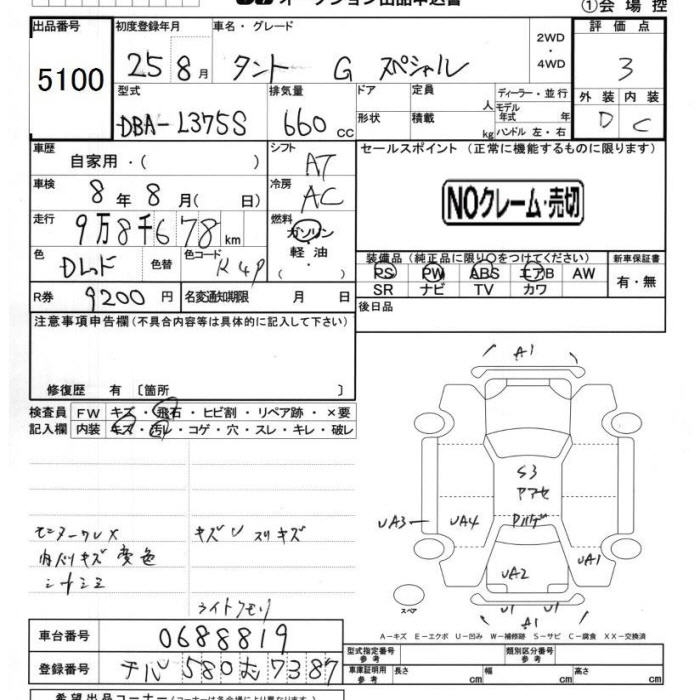 オークション出品申込書
①会場控
出品番号
5100
初度登録年月
25 8月
車名・グレード
タント G スペシャル
2WD
・
4WD
評価点
3
型式
DBA-L375S
排気量
660 cc
ドア
形状
定員
人
積載
kg
ディーラー・並行
モデル年式 年
ハンドル 左・右
外装 内装
D C
車歴
自家用・( )
シフト
AT
セールスポイント (正常に機能するものに限ります)
NOクレーム・売切
車検
8年8月( 日)
冷房
AC
走行
9万8千678 km
燃料
ガソリン
・
軽油
・
( )
色
色替
色コード
R49
装備品 (純正品に限り○をつけてください)
PS PW ABS エアB AW
SR ナビ TV カワ
新車保証書
有・無
R券
9200円
名変通知期限 月 日
後日品
注意事項申告欄(不具合内容等は具体的に記入して下さい)
修復歴 有 〔箇所 〕
検査員
記入欄
FW キズ・飛石・ヒビ割・リペア跡・×要
内装 キズ・汚レ・コゲ・穴・スレ・キレ・破レ
キズU スリキズ
内ハリキズ 変色
シナシミ
ライトクモリ
A1
S3
アマセ
UA3
UA4
UA1
UA2
U1 U1
スペア
A－キズ E－エクボ U－凹み W－補修跡 S－サビ C－腐食 XX－交換済
車台番号
0688819
登録番号
チバ 580 む 7387
型式指定番号
参考
類別区分番号
参考
車庫証明用
参考
長さ cm 幅 cm 高さ cm
希望出品コーナー(コーナーは各会場により異なります)